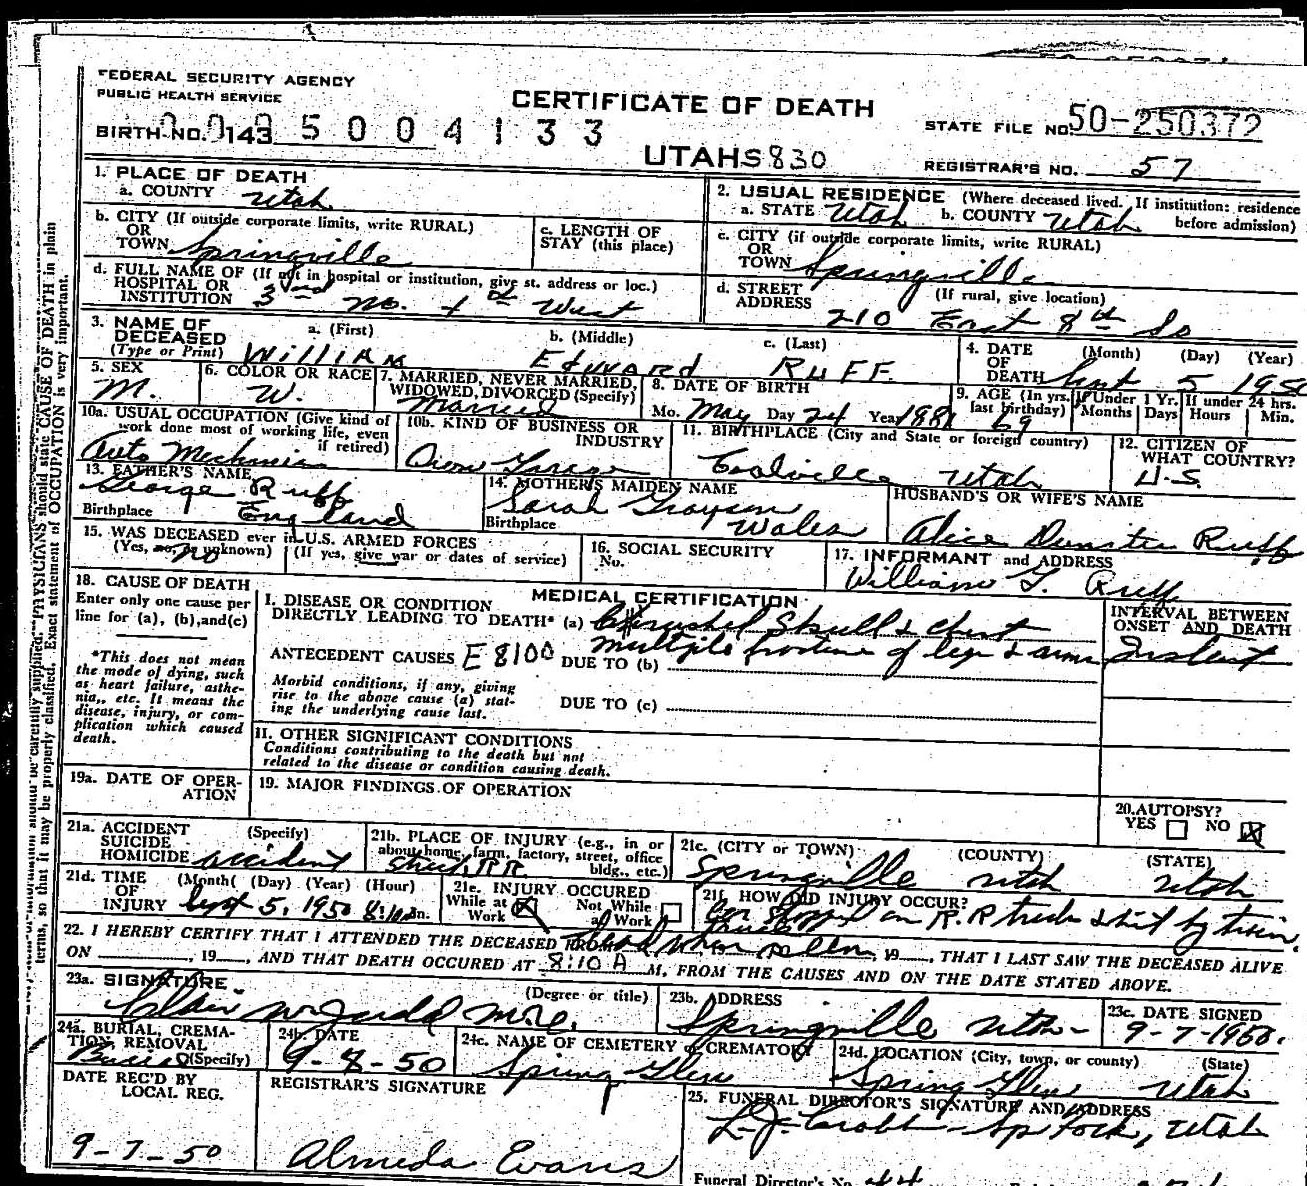 FEDERAL SECURITY AGENCY
PUBLIC HEALTH SERVICE
CERTIFICATE OF DEATH
STATE FILE NO. 50-250372
BIRTH NO. 143 5004133
UTAH S830
REGISTRAR'S NO. 57
1. PLACE OF DEATH
a. COUNTY Utah
2. USUAL RESIDENCE (Where deceased lived. If institution: residence before admission)
a. STATE Utah b. COUNTY Utah
b. CITY (If outside corporate limits, write RURAL)
OR
TOWN Springville
c. LENGTH OF
STAY (this place)
c. CITY (if outside corporate limits, write RURAL)
OR
TOWN Springville
d. FULL NAME OF (If not in hospital or institution, give st. address or loc.)
HOSPITAL OR
INSTITUTION 3rd No. + West
d. STREET (If rural, give location)
ADDRESS 210 East 8th So
3. NAME OF
DECEASED
(Type or Print)
a. (First) William
b. (Middle) Edward
c. (Last) RUFF
4. DATE (Month) (Day) (Year)
OF
DEATH Sept 5 1950
5. SEX
M.
6. COLOR OR RACE
W.
7. MARRIED, NEVER MARRIED,
WIDOWED, DIVORCED (Specify)
Married
8. DATE OF BIRTH
Mo. May Day 24 Year 1881
9. AGE (In yrs. last birthday) 69
If Under 1 Yr. Months Days
If under 24 hrs. Hours Min.
10a. USUAL OCCUPATION (Give kind of
work done most of working life, even
if retired)
Auto Mechanic
10b. KIND OF BUSINESS OR
INDUSTRY
Own Garage
11. BIRTHPLACE (City and State or foreign country)
Coalville Utah
12. CITIZEN OF
WHAT COUNTRY?
U.S.
13. FATHER'S NAME
George Ruff
Birthplace England
14. MOTHER'S MAIDEN NAME
Sarah Grayson
Birthplace Wales
HUSBAND'S OR WIFE'S NAME
Alice Ruff
15. WAS DECEASED ever in U.S. ARMED FORCES
(Yes, no, unknown) (If yes, give war or dates of service)
no
16. SOCIAL SECURITY
No.
17. INFORMANT and ADDRESS
William Ruff
18. CAUSE OF DEATH
Enter only one cause per
line for (a), (b), and (c)
*This does not mean
the mode of dying, such
as heart failure, asthe-
nia,, etc. It means the
disease, injury, or com-
plication which caused
death.
MEDICAL CERTIFICATION
I. DISEASE OR CONDITION
DIRECTLY LEADING TO DEATH* (a) Crushed Skull & chest
multiple fracture of legs & arms
ANTECEDENT CAUSES E8100 DUE TO (b)
Morbid conditions, if any, giving
rise to the above cause (a) stat-
ing the underlying cause last.
DUE TO (c)
INTERVAL BETWEEN
ONSET AND DEATH
Instant
II. OTHER SIGNIFICANT CONDITIONS
Conditions contributing to the death but not
related to the disease or condition causing death.
19a. DATE OF OPER-
ATION
19. MAJOR FINDINGS OF OPERATION
20. AUTOPSY?
YES NO X
21a. ACCIDENT (Specify)
SUICIDE
HOMICIDE accident
21b. PLACE OF INJURY (e.g., in or
about home, farm, factory, street, office
bldg., etc.)
RR
21c. (CITY or TOWN) (COUNTY) (STATE)
Springville Utah Utah
21d. TIME (Month) (Day) (Year) (Hour)
OF
INJURY Sept 5, 1950 8:10 m.
21e. INJURY OCCURED
While at Work X
Not While at Work
21f. HOW DID INJURY OCCUR?
Car stopped on R.R tracks & hit by train.
22. I HEREBY CERTIFY THAT I ATTENDED THE DECEASED FROM dead when seen, 19
ON , 19 , AND THAT DEATH OCCURED AT 8:10 A M, FROM THE CAUSES AND ON THE DATE STATED ABOVE.
THAT I LAST SAW THE DECEASED ALIVE
23a. SIGNATURE (Degree or title)
Judd M.D.
23b. ADDRESS
Springville Utah
23c. DATE SIGNED
9-7-1950.
24a. BURIAL, CREMA-
TION, REMOVAL
(Specify)
Burial
24b. DATE
9-8-50
24c. NAME OF CEMETERY or CREMATORY
Spring Glen
24d. LOCATION (City, town, or county) (State)
Spring Glen Utah
DATE REC'D BY
LOCAL REG.
9-7-50
REGISTRAR'S SIGNATURE
Almeda Evans
25. FUNERAL DIRECTOR'S SIGNATURE AND ADDRESS
Sp Fork, Utah
Funeral Director's No. 44